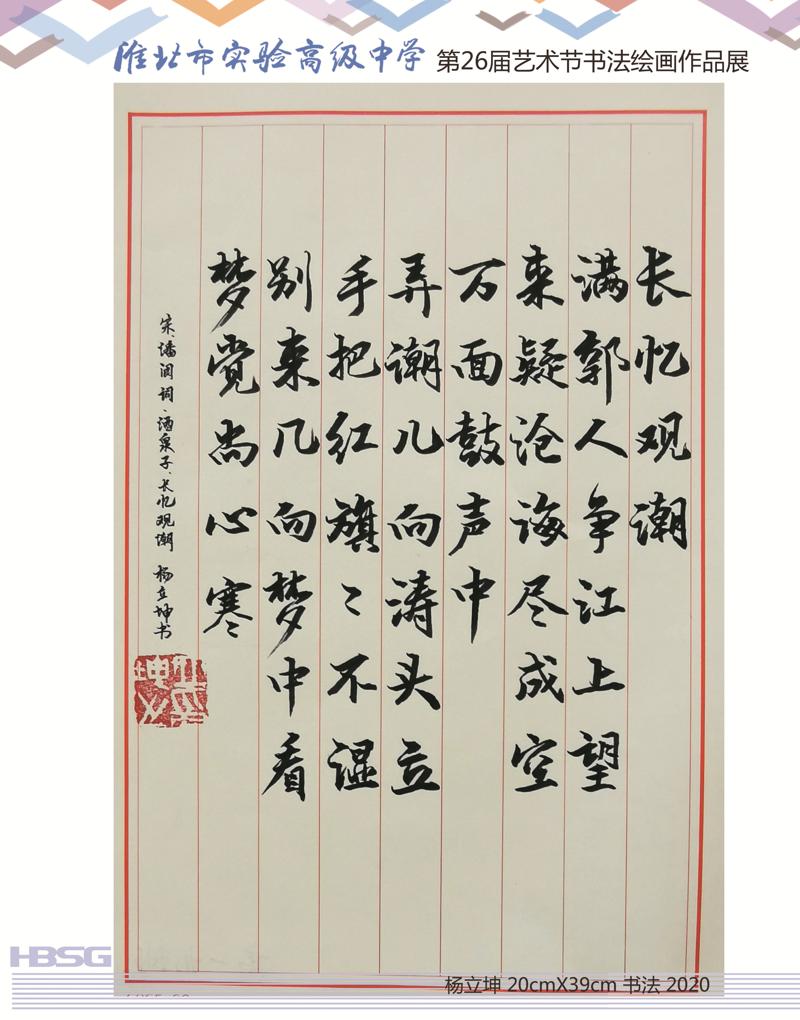 淮北市实验高级中学 第26届艺术节书法绘画作品展
长忆观潮
满郭人争江上望
来疑沧海尽成空
万面鼓声中
弄潮儿向涛头立
手把红旗〻不湿
别来几向梦中看
梦觉尚心寒
宋、潘阆词、酒泉子、长忆观潮 杨立坤书
HBSG
杨立坤 20cmX39cm 书法 2020